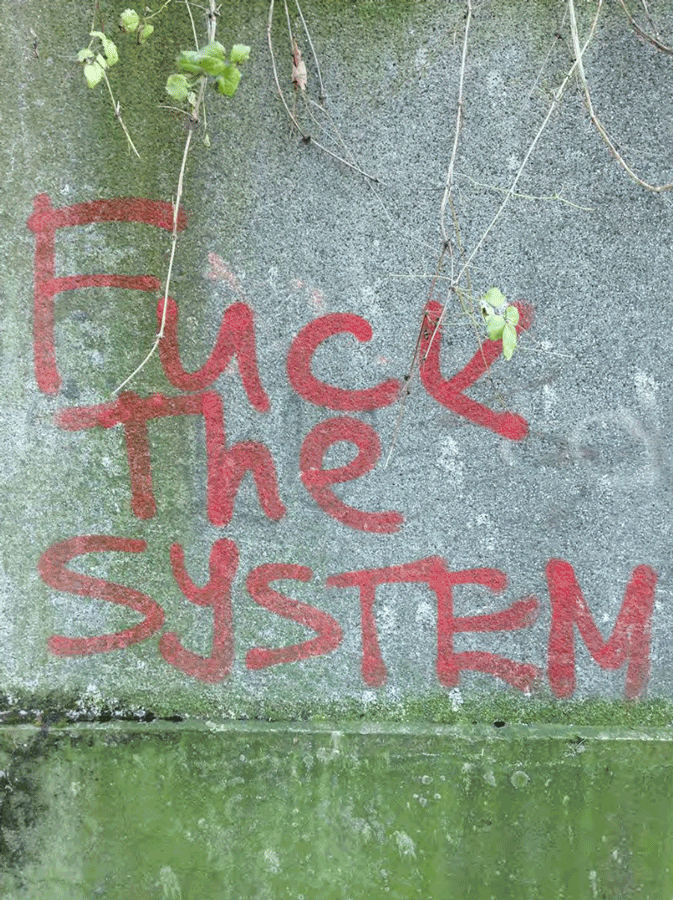 Fuck
The
SySTEM